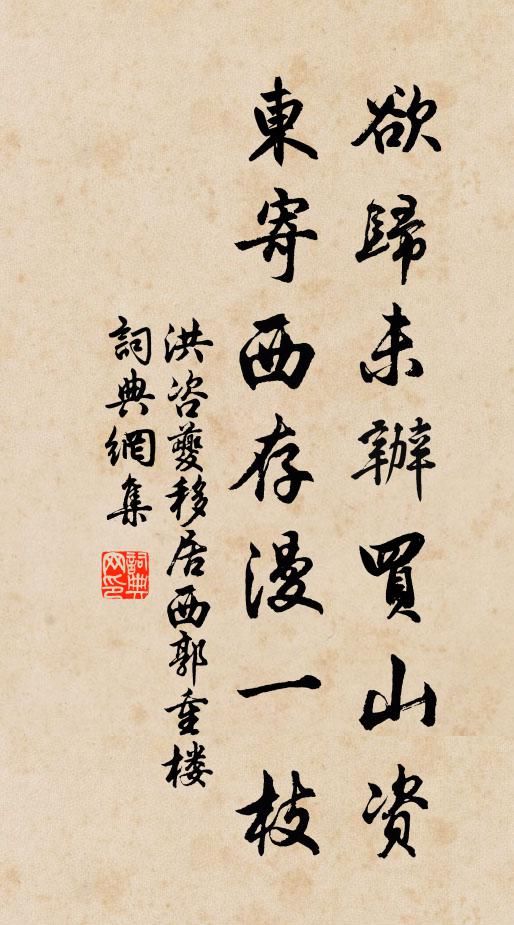 欲歸未辦買山资
東寄西存漫一枝
洪咨夔移居西郭重楼
詞典網集
詞典网印